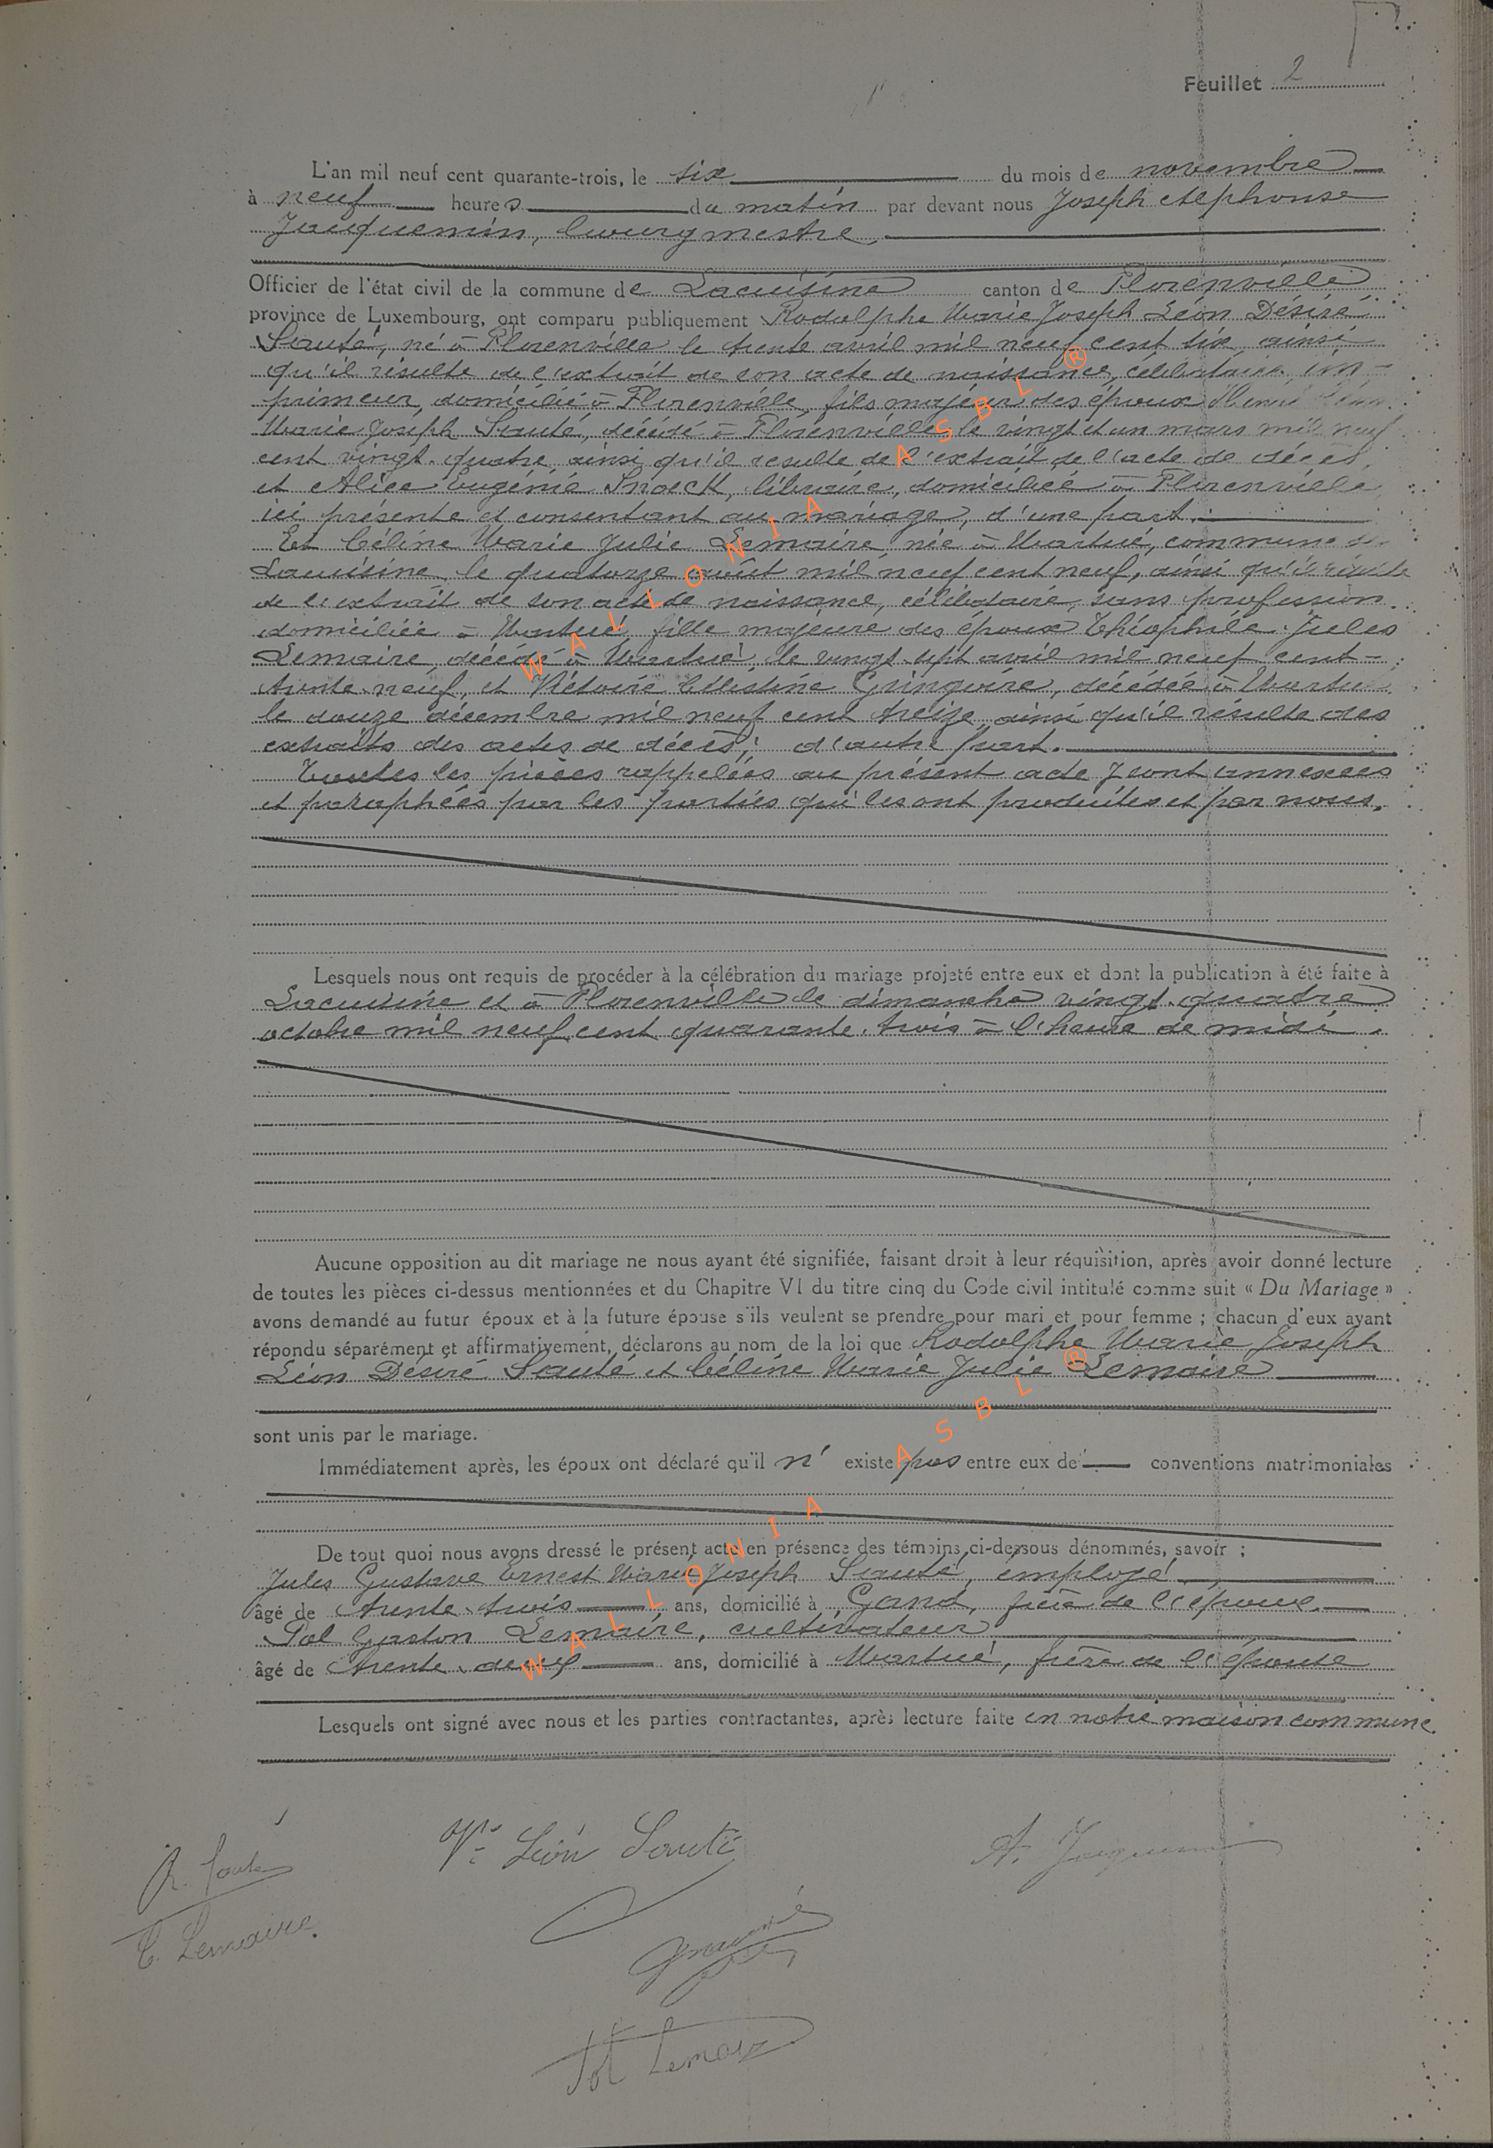 Feuillet 2
L'an mil neuf cent quarante-trois, le six du mois de novembre
à neuf heures du matin par devant nous Joseph Alphonse
Jacquemin, bourgmestre,
Officier de l'état civil de la commune de Lacuisine canton de Florenville
province de Luxembourg, ont comparu publiquement Rodolphe Marie Joseph Léon Désiré
Sauté, né à Florenville le trente avril mil neuf cent six, ainsi
qu'il résulte de l'extrait de son acte de naissance, célibataire, im-
primeur, domicilié à Florenville, fils majeur des époux Henri Léon
Marie Joseph Sauté, décédé à Florenville le vingt et un mars mil neuf
cent vingt-quatre, ainsi qu'il résulte de l'extrait de l'acte de décès,
et Alice Eugénie libraire, domiciliée à Florenville,
ici présente et consentant au mariage, d'une part.
Et Céline Marie Julie Lemaire née à Martué, commune de
Lacuisine, le quatorze août mil neuf cent neuf, ainsi qu'il résulte
de l'extrait de son acte de naissance, célibataire, sans profession
domiciliée à Martué, fille majeure des époux Théophile Jules
Lemaire, décédé à Martué, le vingt-sept avril mil neuf cent-
trente-neuf, et Victoire Célestine Gringoire, décédée à Martué
le douze décembre mil neuf cent treize, ainsi qu'il résulte des
extraits des actes de décès; d'autre part.
Toutes les pièces rappelées au présent acte y sont annexées
et paraphées par les parties qui les ont produites et par nous.
Lesquels nous ont requis de procéder à la célébration du mariage projeté entre eux et dont la publication à été faite à
Lacuisine et à Florenville le dimanche vingt-quatre
octobre mil neuf cent quarante-trois à l'heure de midi.
Aucune opposition au dit mariage ne nous ayant été signifiée, faisant droit à leur réquisition, après avoir donné lecture
de toutes les pièces ci-dessus mentionnées et du Chapitre VI du titre cinq du Code civil intitulé comme suit « Du Mariage »
avons demandé au futur époux et à la future épouse s'ils veulent se prendre pour mari et pour femme ; chacun d'eux ayant
répondu séparément et affirmativement, déclarons au nom de la loi que Rodolphe Marie Joseph
Léon Désiré Sauté et Céline Marie Julie Lemaire
sont unis par le mariage.
Immédiatement après, les époux ont déclaré qu'il n' existe pas entre eux de conventions matrimoniales
De tout quoi nous avons dressé le présent acte en présence des témoins ci-dessous dénommés, savoir ;
Jules Gustave Ernest Marie Joseph Sauté, employé
âgé de trente-trois ans, domicilié à Gand, frère de l'époux.
Pol Gaston Lemaire, cultivateur
âgé de trente-deux ans, domicilié à Martué, frère de l'épouse
Lesquels ont signé avec nous et les parties contractantes, après lecture faite en notre maison commune.
R. Sauté
Vve Léon Sauté
A. Jacquemin
C. Lemaire.
Pol Lemaire
WALLONIA ASBL ®
WALLONIA ASBL ®